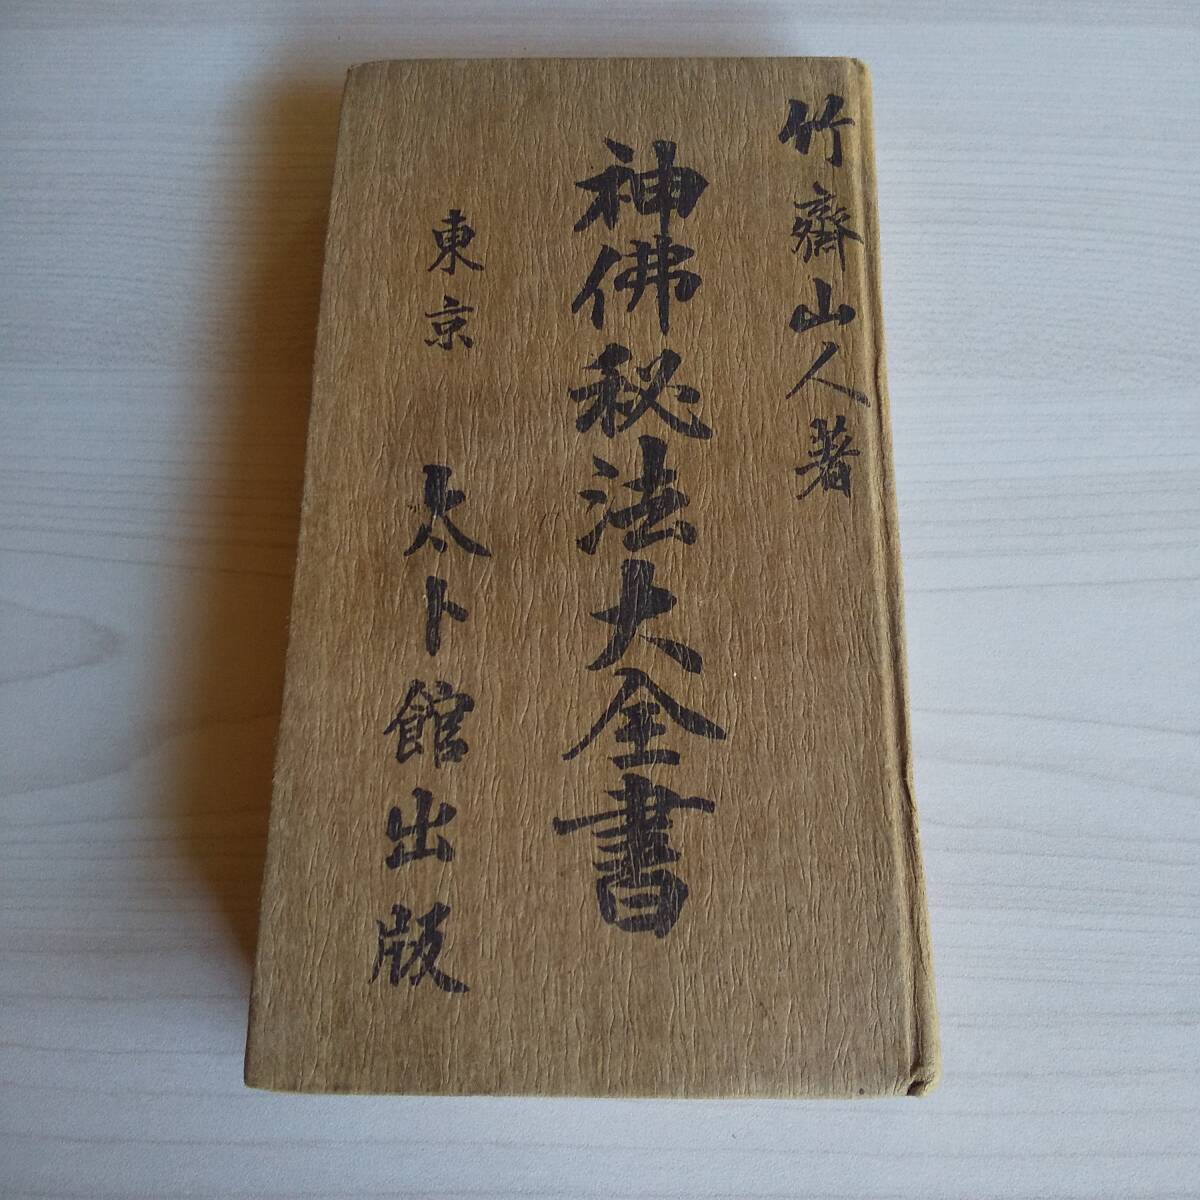 竹齋山人著
神佛秘法大全書
東京 太卜館出版